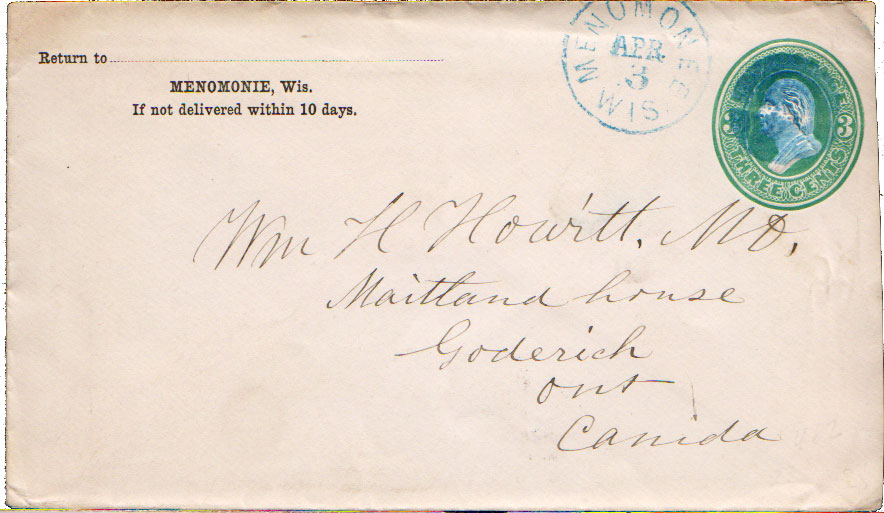 Return to
MENOMONIE, Wis.
If not delivered within 10 days.
MENOMONEE
APR
3
WIS.
3 3
THREE CENTS
Wm H Howitt, MD,
Maitland house
Goderich
Ont
Canida